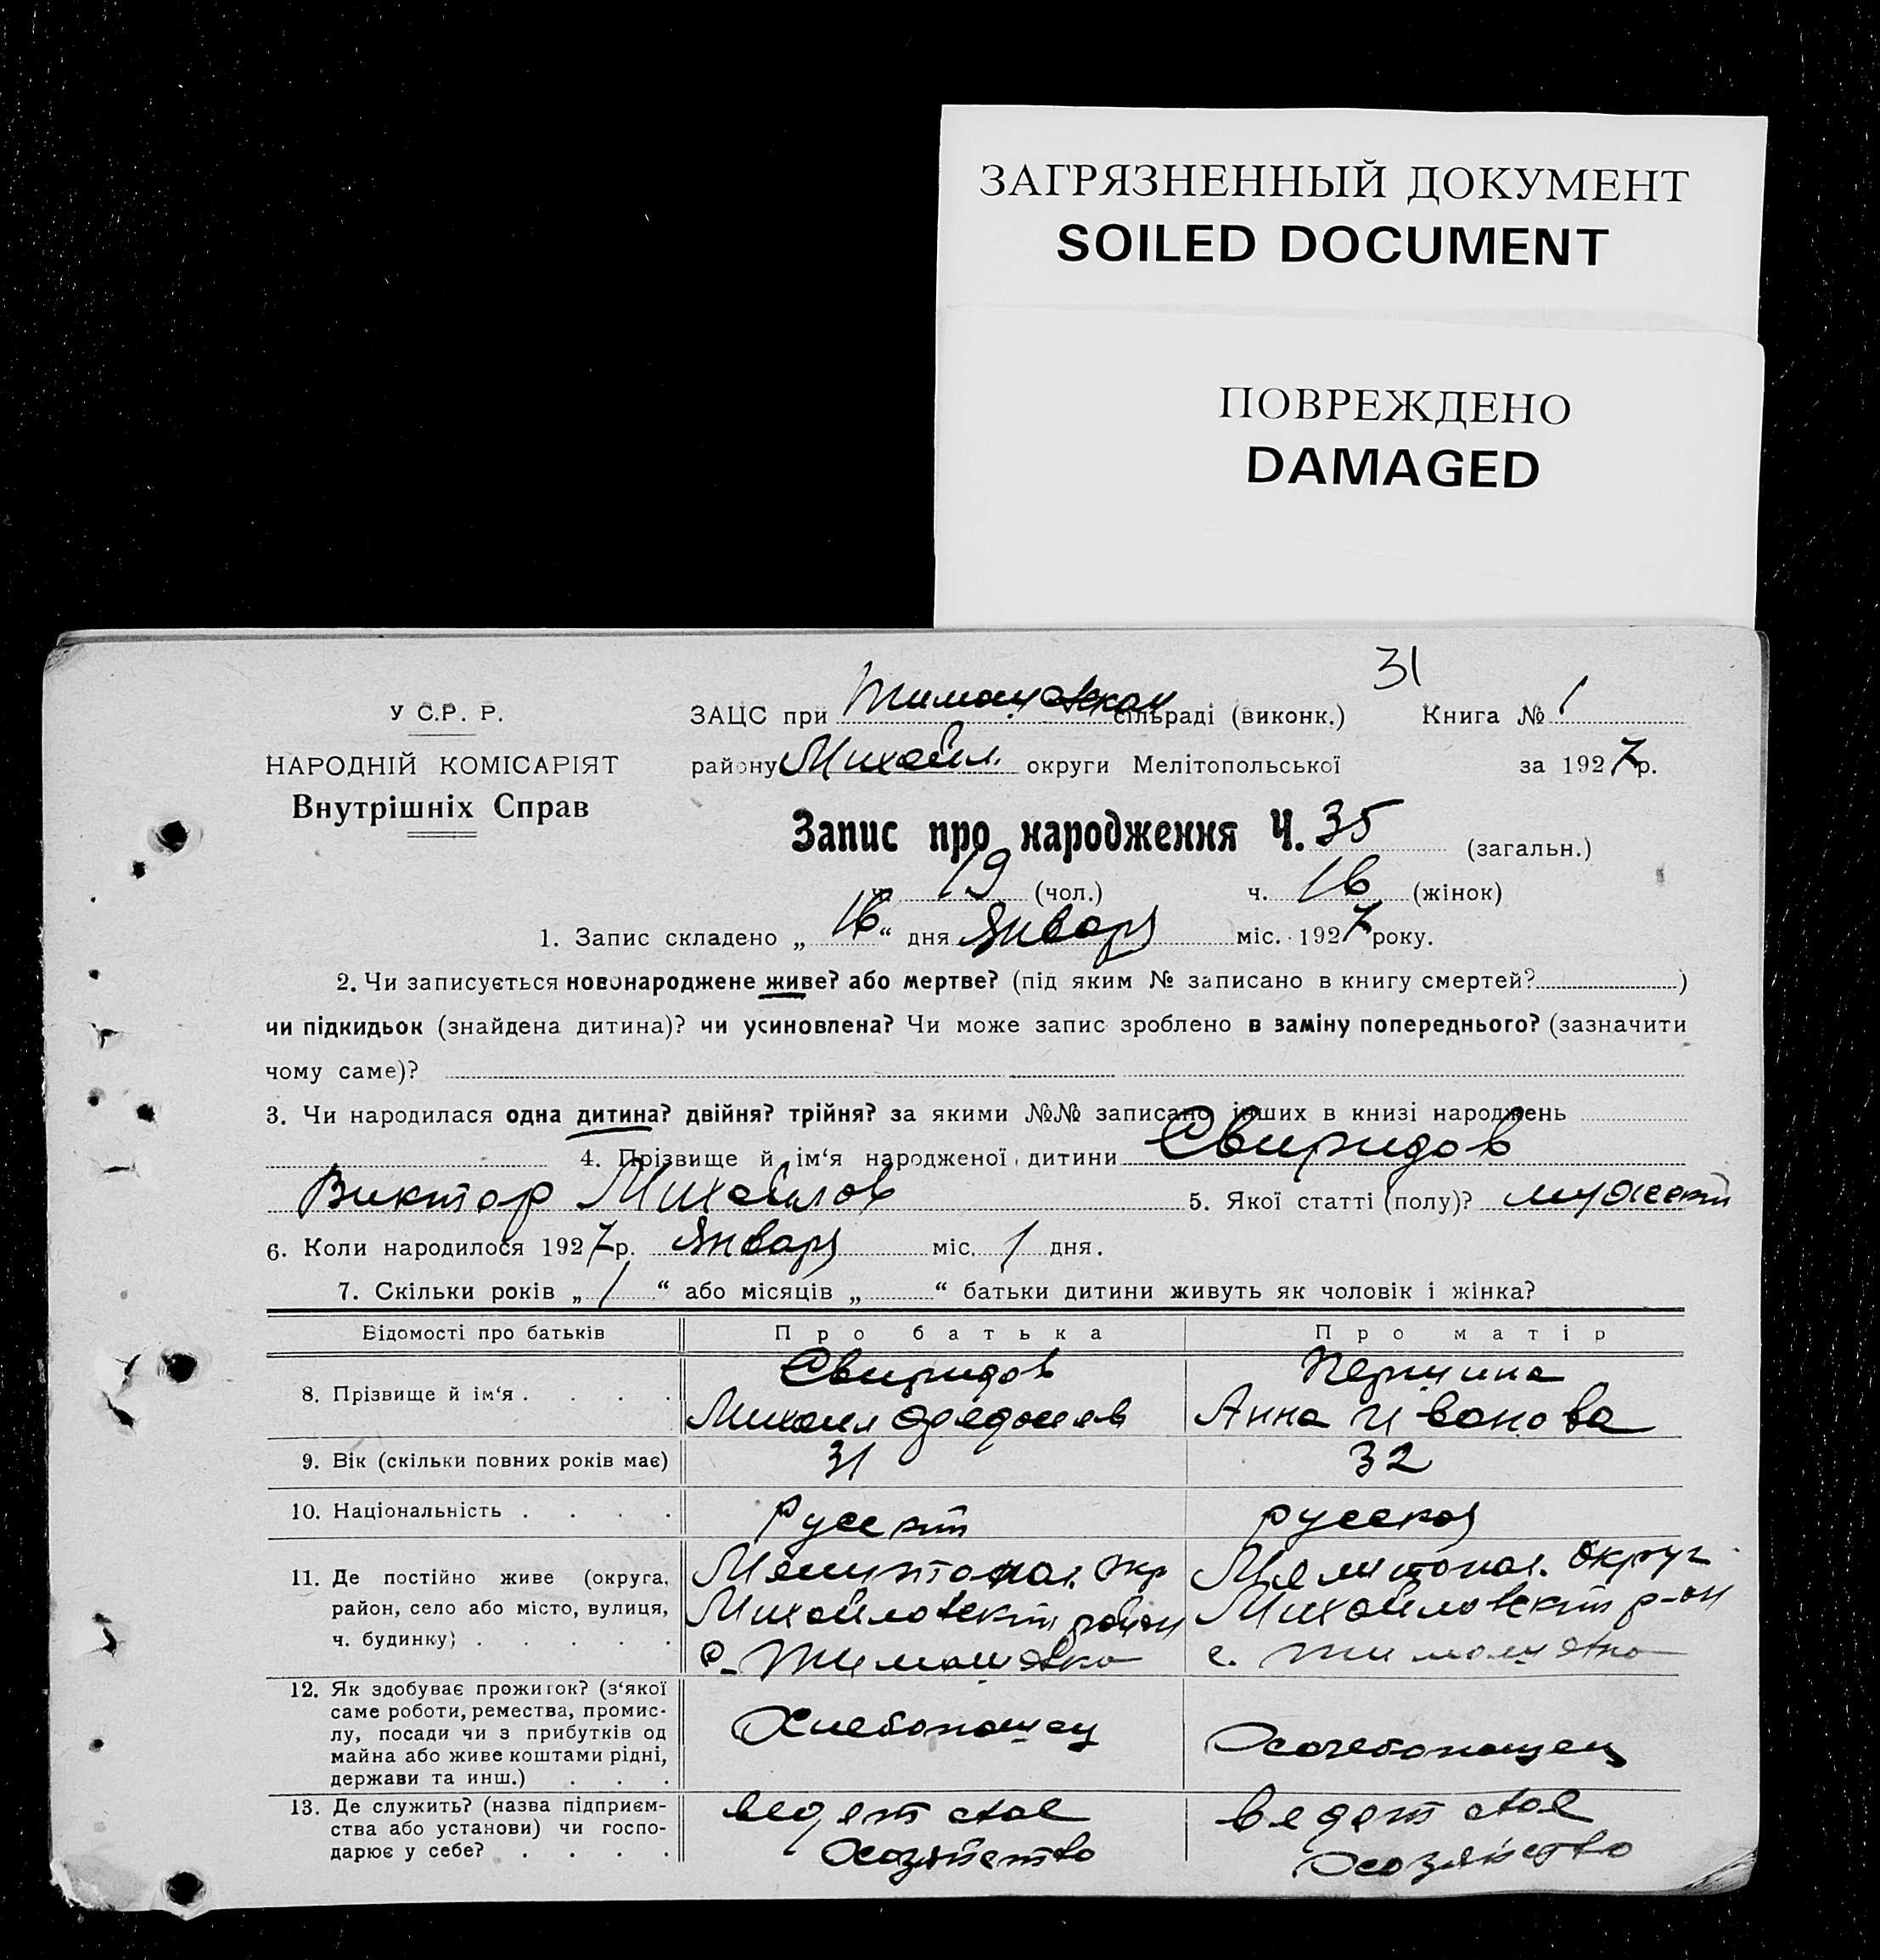 ЗАГРЯЗНЕННЫЙ ДОКУМЕНТ
SOILED DOCUMENT
ПОВРЕЖДЕНО
DAMAGED
31
У С.Р. Р.
НАРОДНІЙ КОМІСАРІЯТ
Внутрішніх Справ
ЗАЦС при Тимошевской сільраді (виконк.) Книга № 1
району Михайл. округи Мелітопольської за 1927 р.
Запис про народження Ч. 35 (загальн.)
ч. 19 (чол.) ч. 16 (жінок)
1. Запис складено „ 16 “ дня Января міс. 1927 року.
2. Чи записується новонароджене живе? або мертве? (під яким № записано в книгу смертей? )
чи підкидьок (знайдена дитина)? чи усиновлена? Чи може запис зроблено в заміну попереднього? (зазначити
чому саме)?
3. Чи народилася одна дитина? двійня? трійня? за якими №№ записано інших в книзі народжень
4. Прізвище й ім‘я народженої дитини Свиридов
Виктор Михайлов 5. Якої статті (полу)? мужскт
6. Коли народилося 1927 р. Января міс. 1 дня.
7. Скільки років „ 1 “ або місяців „ “ батьки дитини живуть як чоловік і жінка?
Відомості про батьків Про батька Про матір
8. Прізвище й ім‘я . . . . Свиридов Першина
Михаил Анна Иванова
9. Вік (скільки повних років має) 31 32
10. Національність . . . . Русскт русская
11. Де постійно живе (округа, Мелитопол. окр Мелитопол. округ
район, село або місто, вулиця, Михайловскт район Михайловскт р-он
ч. будинку) . . . . . с. Тимошевка с. Тимошевка
12. Як здобуває прожиток? (з‘якої
саме роботи, ремества, промис-
лу, посади чи з прибутків од Хлебопашец Хлебопашец
майна або живе коштами рідні,
держави та инш.) . . .
13. Де служить? (назва підприєм- ведет свое ведет свое
ства або установи) чи госпо-
дарює у себе? . . . . хозяйство хозяйство